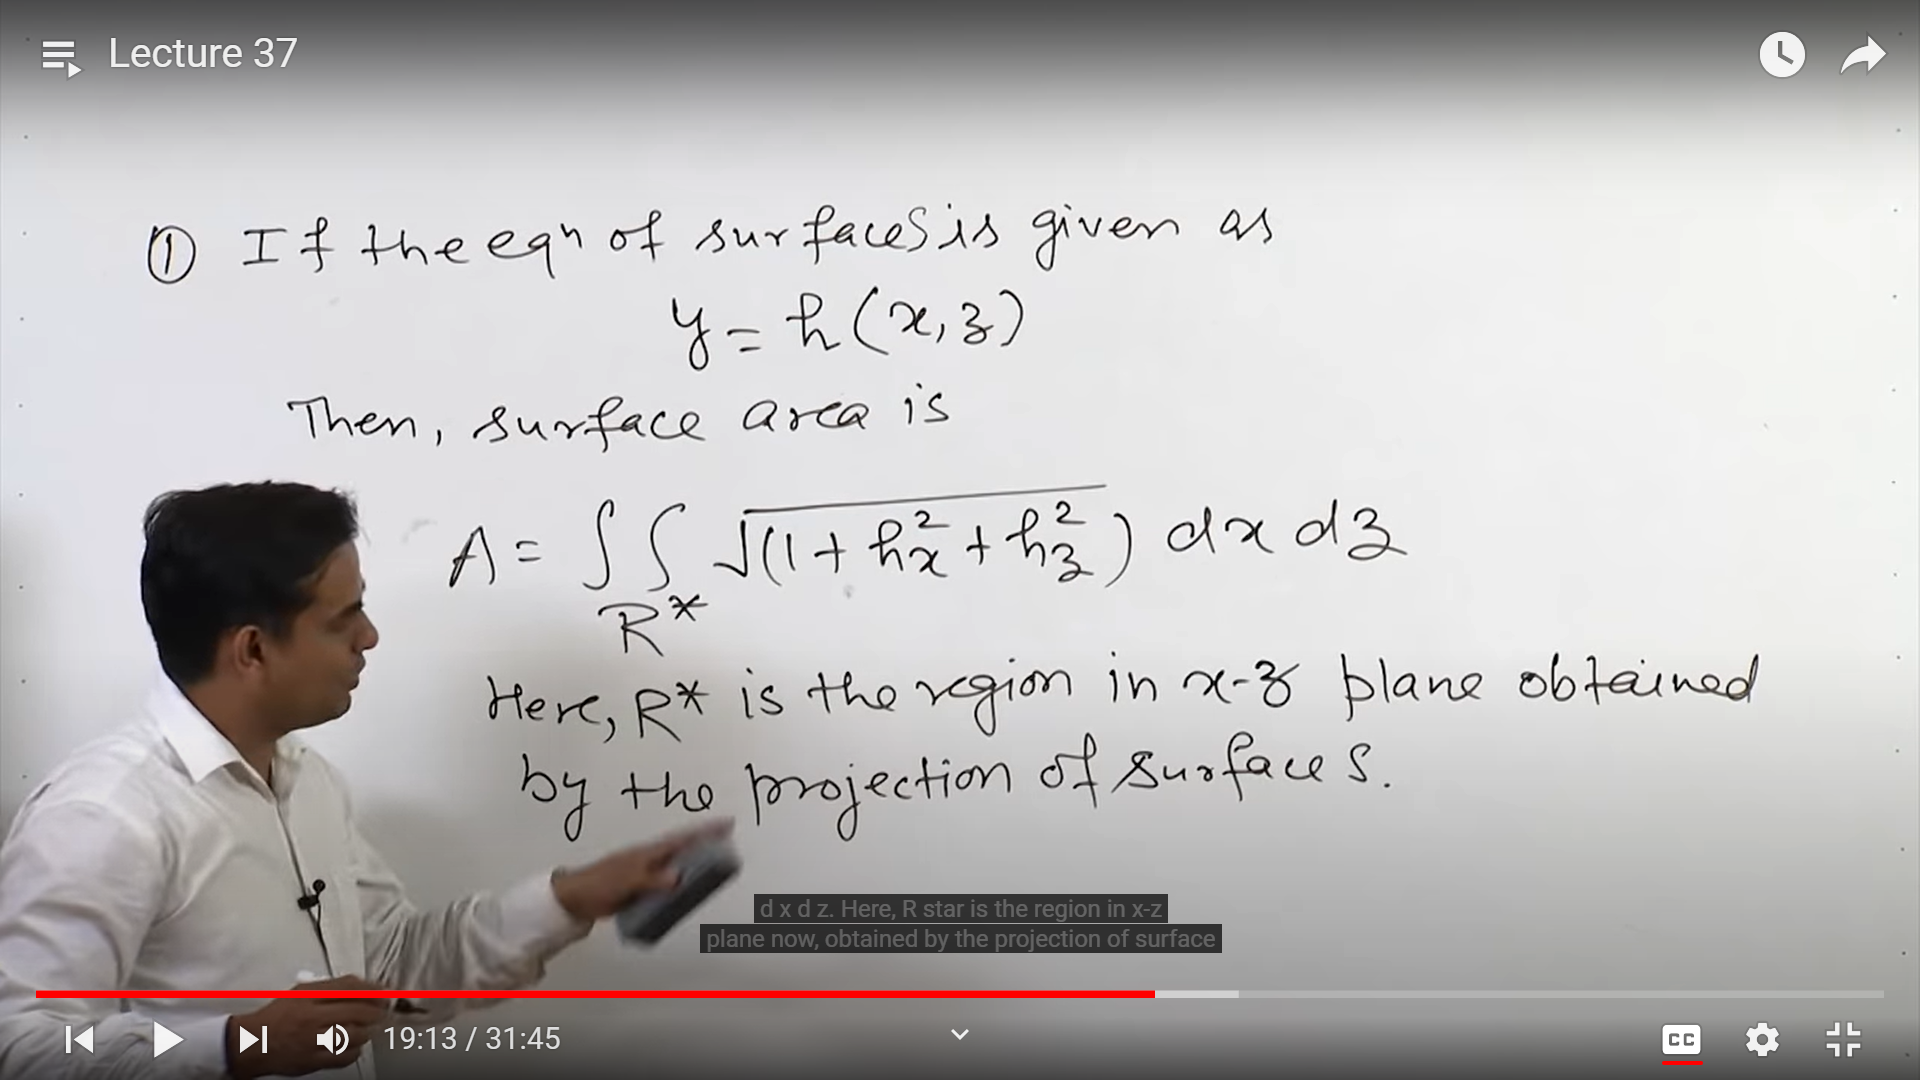 Lecture 37
① If the eqn of surface S is given as
y = h(x, z)
Then, surface area is
A = ∫∫ √(1 + hx² + hz²) dx dz
R*
Here, R* is the region in x-z plane obtained
by the projection of surface S.
d x d z. Here, R star is the region in x-z
plane now, obtained by the projection of surface
19:13 / 31:45
CC